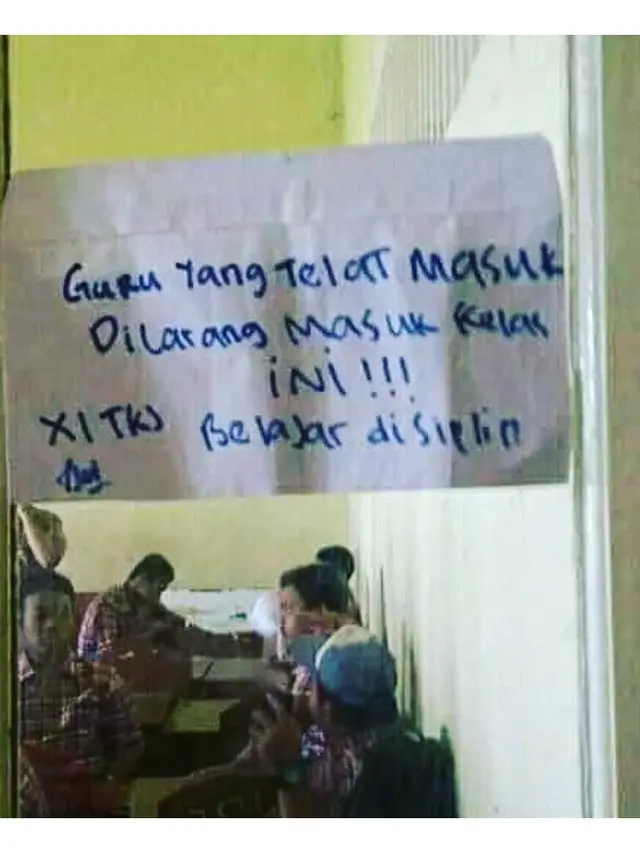 Guru Yang Telat Masuk
Dilarang Masuk Kelas
iNi!!!
XI TKJ Belajar disiplin